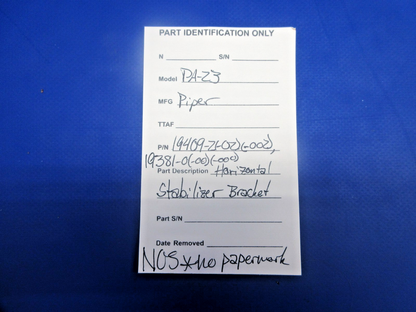 PART IDENTIFICATION ONLY
N S/N
Model PA-23
MFG Piper
TTAF
P/N 19409-21-02)(-002),
19381-0(-00)(-000)
Part Description Horizontal
Stabilizer Bracket
Part S/N
Date Removed
NOS * no paperwork